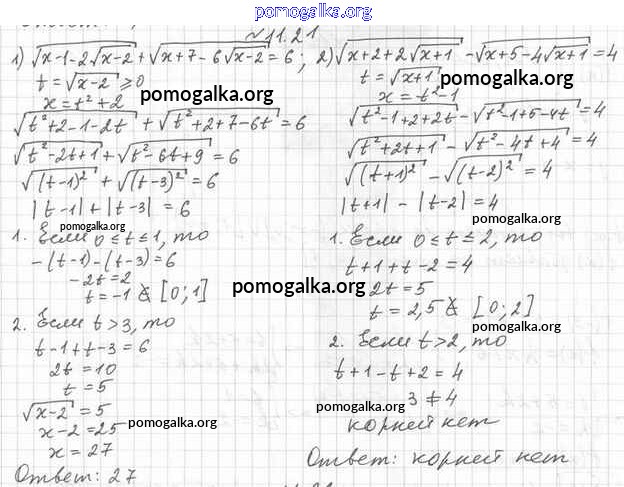 pomogalka.org
№11.21
1) √(x-1-2√(x-2)) + √(x+7-6√(x-2)) = 6;
t = √(x-2) ≥ 0
x = t²+2
pomogalka.org
√(t²+2-1-2t) + √(t²+2+7-6t) = 6
√(t²-2t+1) + √(t²-6t+9) = 6
√((t-1)²) + √((t-3)²) = 6
|t-1| + |t-3| = 6
pomogalka.org
1. Если 0≤t≤1, то
-(t-1)-(t-3)=6
-2t=2
t=-1 ∉ [0;1]
pomogalka.org
2. Если t>3, то
t-1+t-3=6
2t=10
t=5
√(x-2) = 5
x-2=25
pomogalka.org
x=27
Ответ: 27
2) √(x+2+2√(x+1)) - √(x+5-4√(x+1)) = 4
t = √(x+1)
pomogalka.org
x = t²-1
√(t²-1+2+2t) - √(t²-1+5-4t) = 4
√(t²+2t+1) - √(t²-4t+4) = 4
pomogalka.org
√((t+1)²) - √((t-2)²) = 4
|t+1| - |t-2| = 4
pomogalka.org
1. Если 0≤t≤2, то
t+1+t-2=4
2t=5
t=2,5 ∉ [0;2]
pomogalka.org
2. Если t>2, то
t+1-t+2=4
3≠4
pomogalka.org
корней нет
Ответ: корней нет